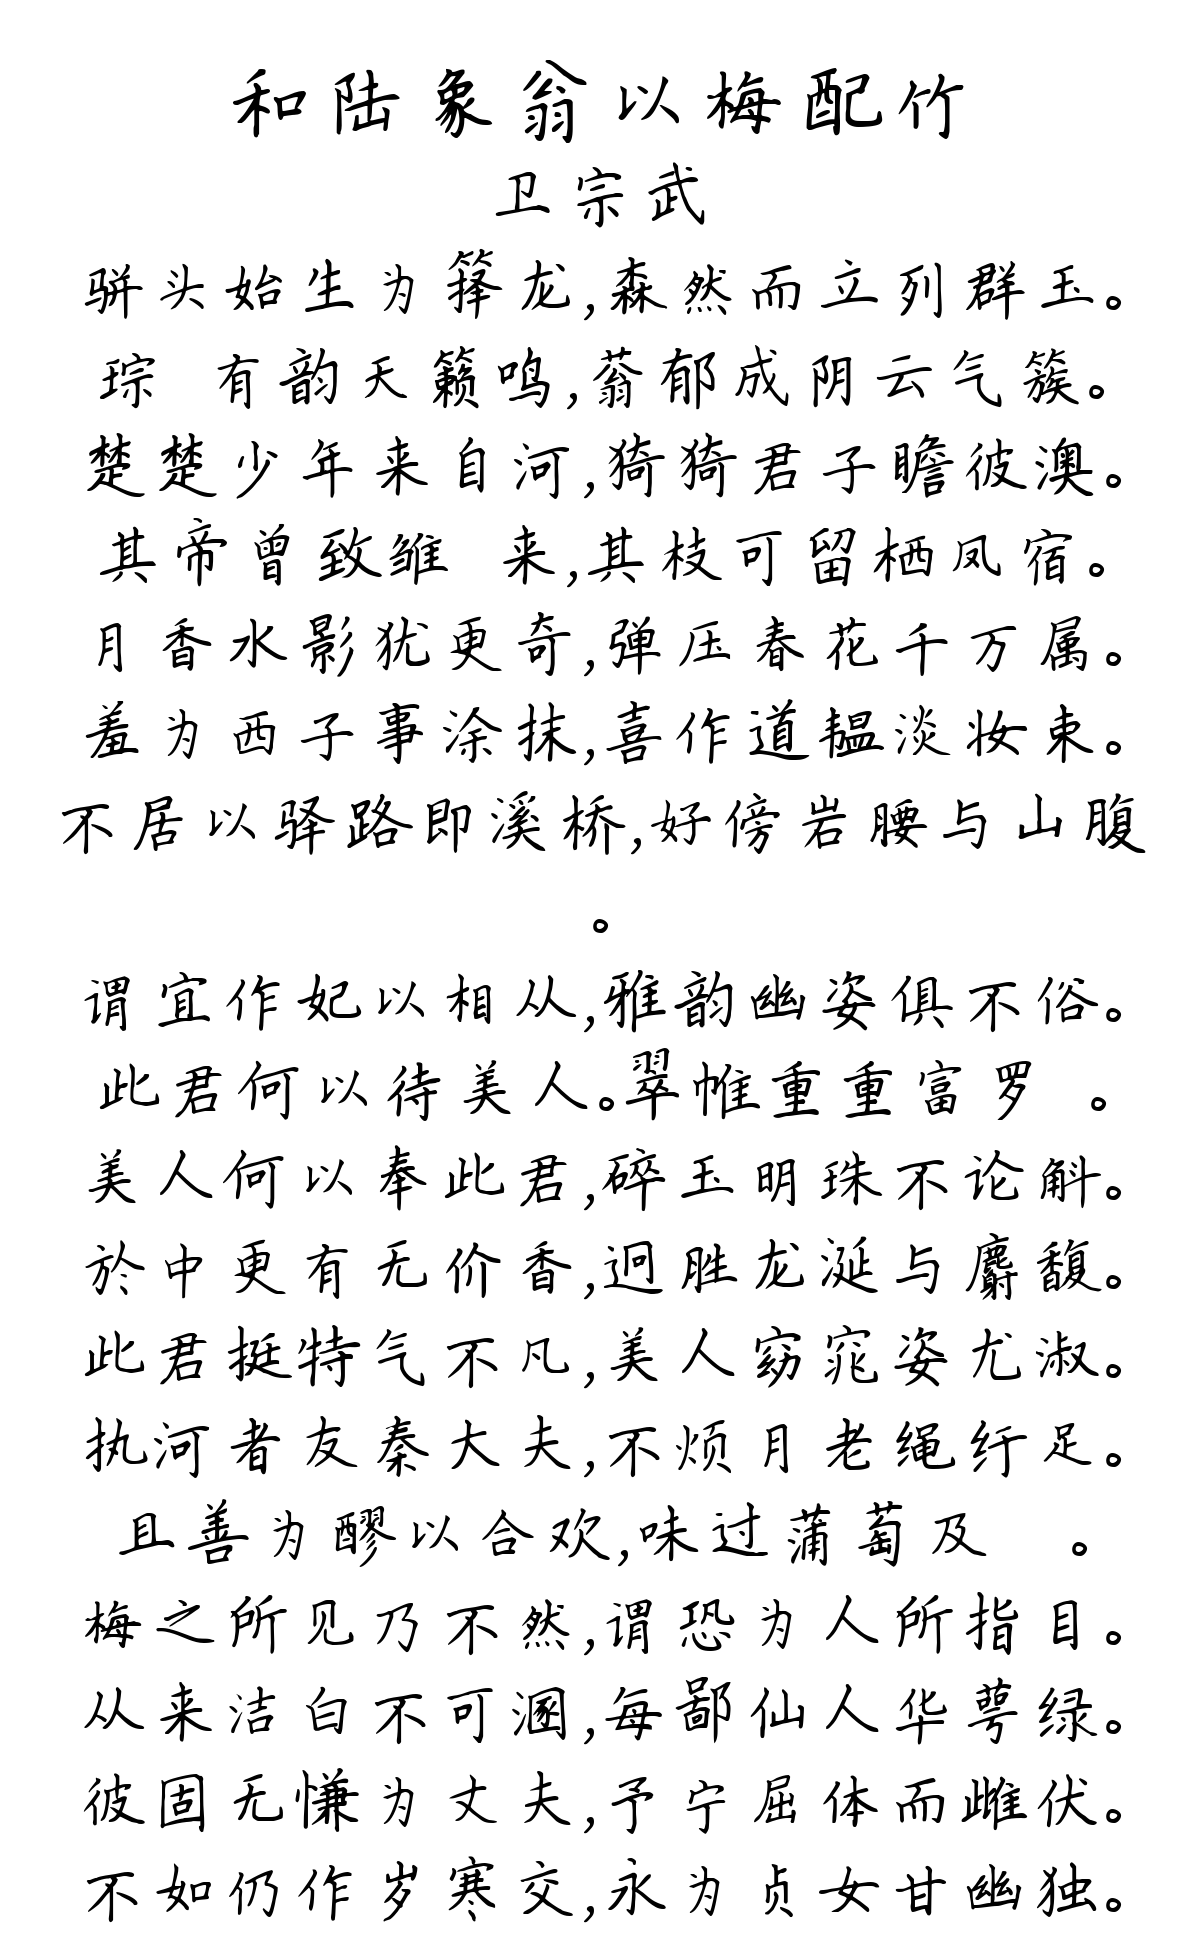 和陆象翁以梅配竹
卫宗武
骈头始生为箨龙,森然而立列群玉。
琮 有韵天籁鸣,蓊郁成阴云气簇。
楚楚少年来自河,猗猗君子瞻彼澳。
其帝曾致雏 来,其枝可留栖凤宿。
月香水影犹更奇,弹压春花千万属。
羞为西子事涂抹,喜作道韫淡妆束。
不居以驿路即溪桥,好傍岩腰与山腹
。
谓宜作妃以相从,雅韵幽姿俱不俗。
此君何以待美人。翠帷重重富罗 。
美人何以奉此君,碎玉明珠不论斛。
於中更有无价香,迥胜龙涎与麝馥。
此君挺特气不凡,美人窈窕姿尤淑。
执河者友秦大夫,不烦月老绳纡足。
且善为醪以合欢,味过蒲萄及 。
梅之所见乃不然,谓恐为人所指目。
从来洁白不可溷,每鄙仙人华萼绿。
彼固无慊为丈夫,予宁屈体而雌伏。
不如仍作岁寒交,永为贞女甘幽独。